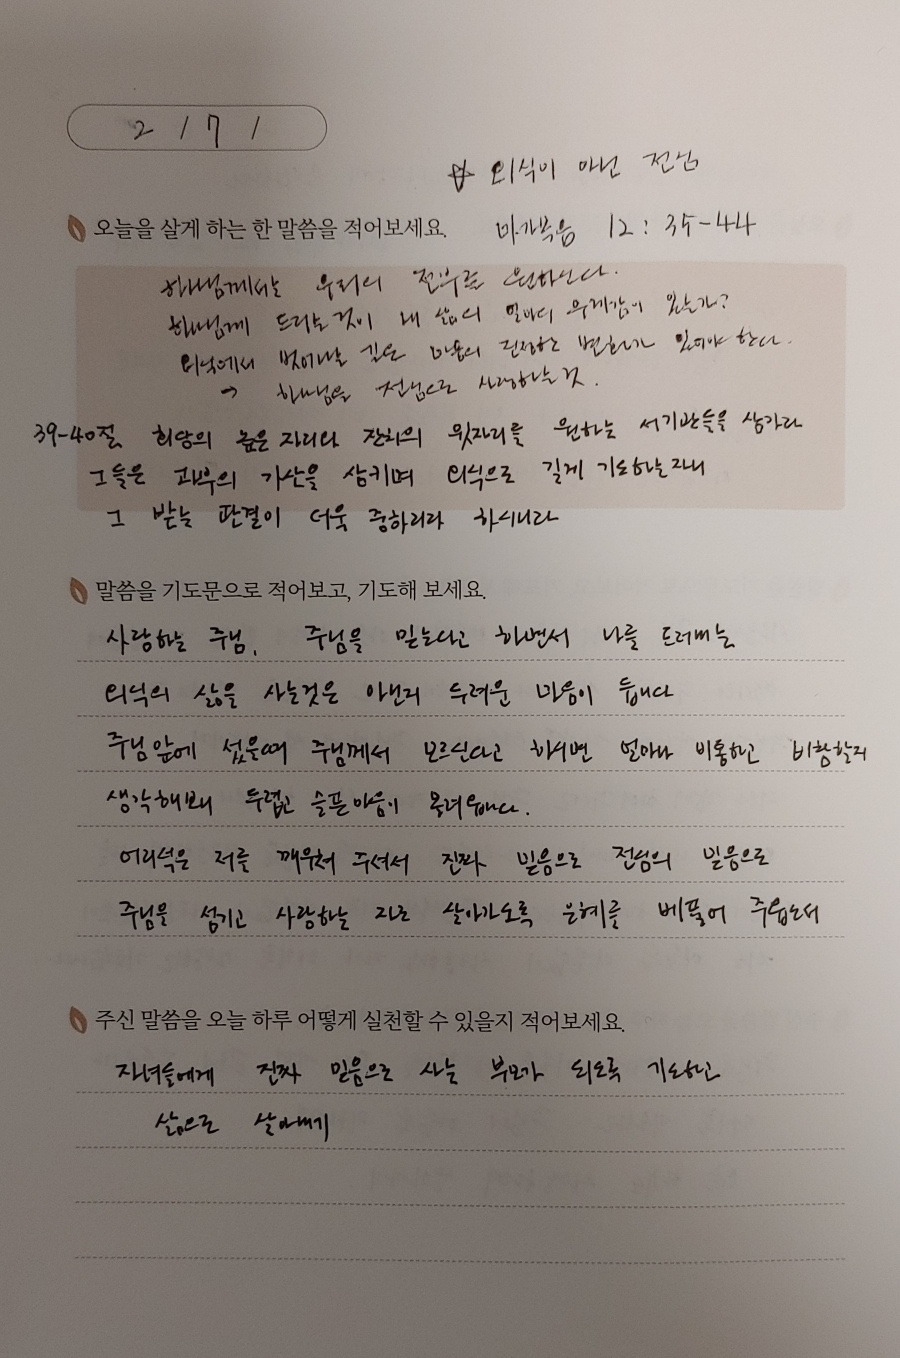 2 / 7 /
☆ 외식이 아닌 전심
오늘을 살게 하는 한 말씀을 적어보세요. 마가복음 12 : 35-44
하나님께서는 우리의 전부를 원하신다.
하나님께 드리는것이 내 삶의 얼마의 무게감이 있는가?
외식에서 벗어나는 깊은 마음의 진정한 변화가 있어야 한다.
→ 하나님을 전심으로 사랑하는것.
39-40절 회당의 높은 자리와 잔치의 윗자리를 원하는 서기관들을 삼가라
그들은 과부의 가산을 삼키며 외식으로 길게 기도하는자니
그 받는 판결이 더욱 중하리라 하시니라
말씀을 기도문으로 적어보고, 기도해 보세요.
사랑하는 주님, 주님을 믿는다고 하면서 나를 드러내는
외식의 삶을 사는것은 아닌지 두려운 마음이 듭니다
주님앞에 섰을때 주님께서 모르신다고 하시면 얼마나 비통하고 비참할지
생각해보니 두렵고 슬픈마음이 몰려옵니다.
어리석은 저를 깨우쳐 주셔서 진짜 믿음으로 전심의 믿음으로
주님을 섬기고 사랑하는 자로 살아가도록 은혜를 베풀어 주옵소서
주신 말씀을 오늘 하루 어떻게 실천할 수 있을지 적어보세요.
자녀들에게 진짜 믿음으로 사는 부모가 되도록 기도하고
삶으로 살아내기